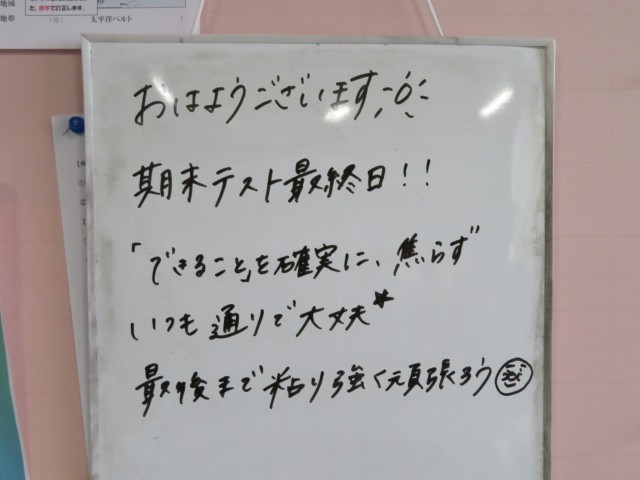 地域
地帯
た、赤字で訂正します。
太平洋ベルト
おはようございます
期末テスト最終日!!
「できること」を確実に、焦らず
いつも通りで大丈夫*
最後まで粘り強く頑張ろう